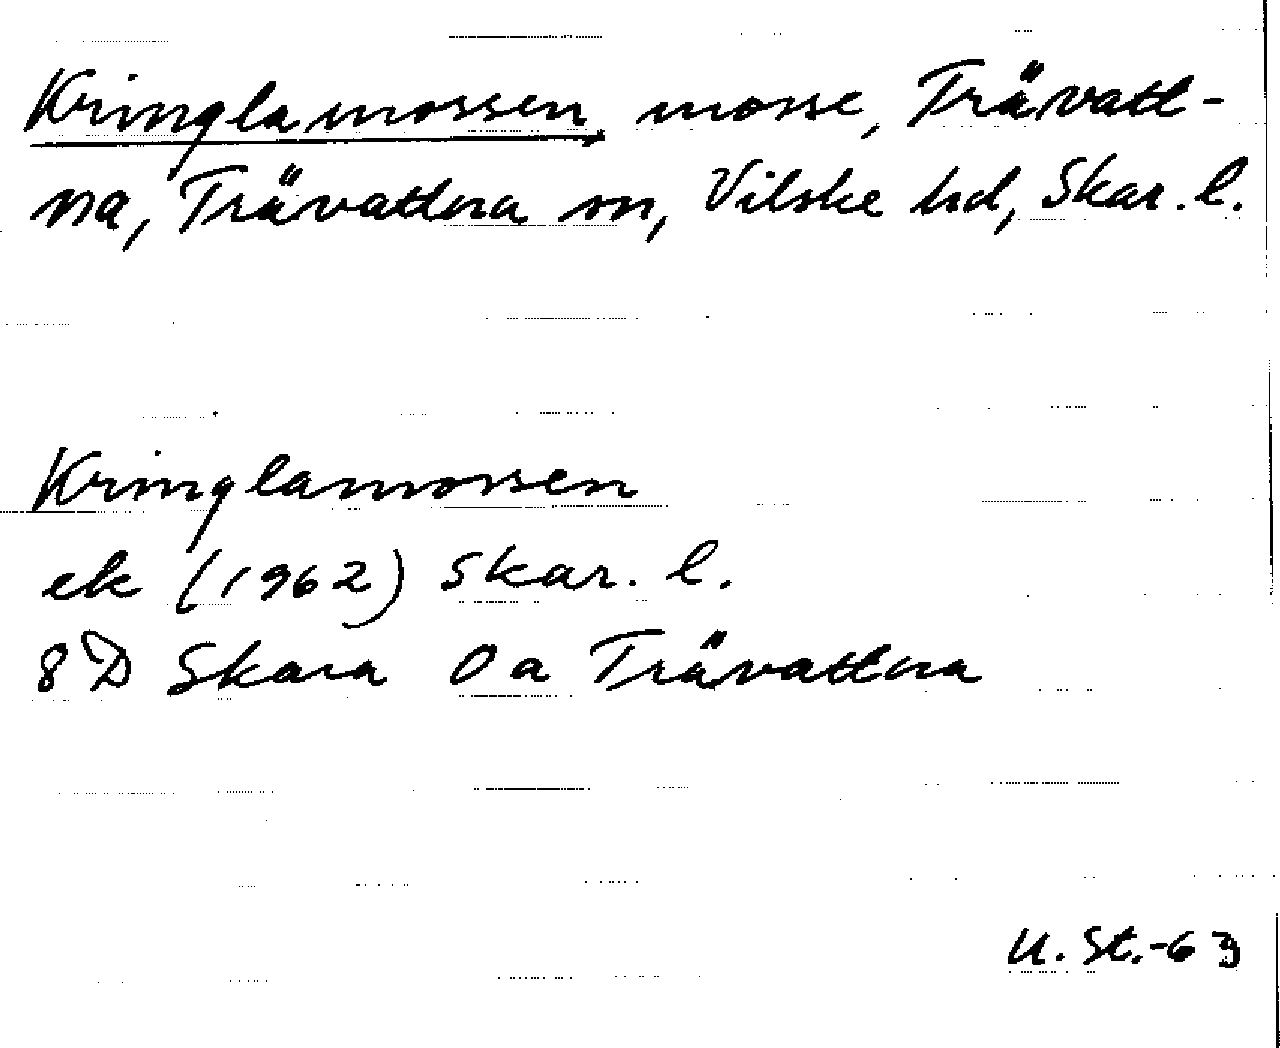 Kringlamossen, mosse, Trävatt-
na, Trävattna sn, Vilske hd, Skar. l.
Kringlamossen
ek (1962) Skar. l.
8D Skara 0a Trävattna
U. St.-63